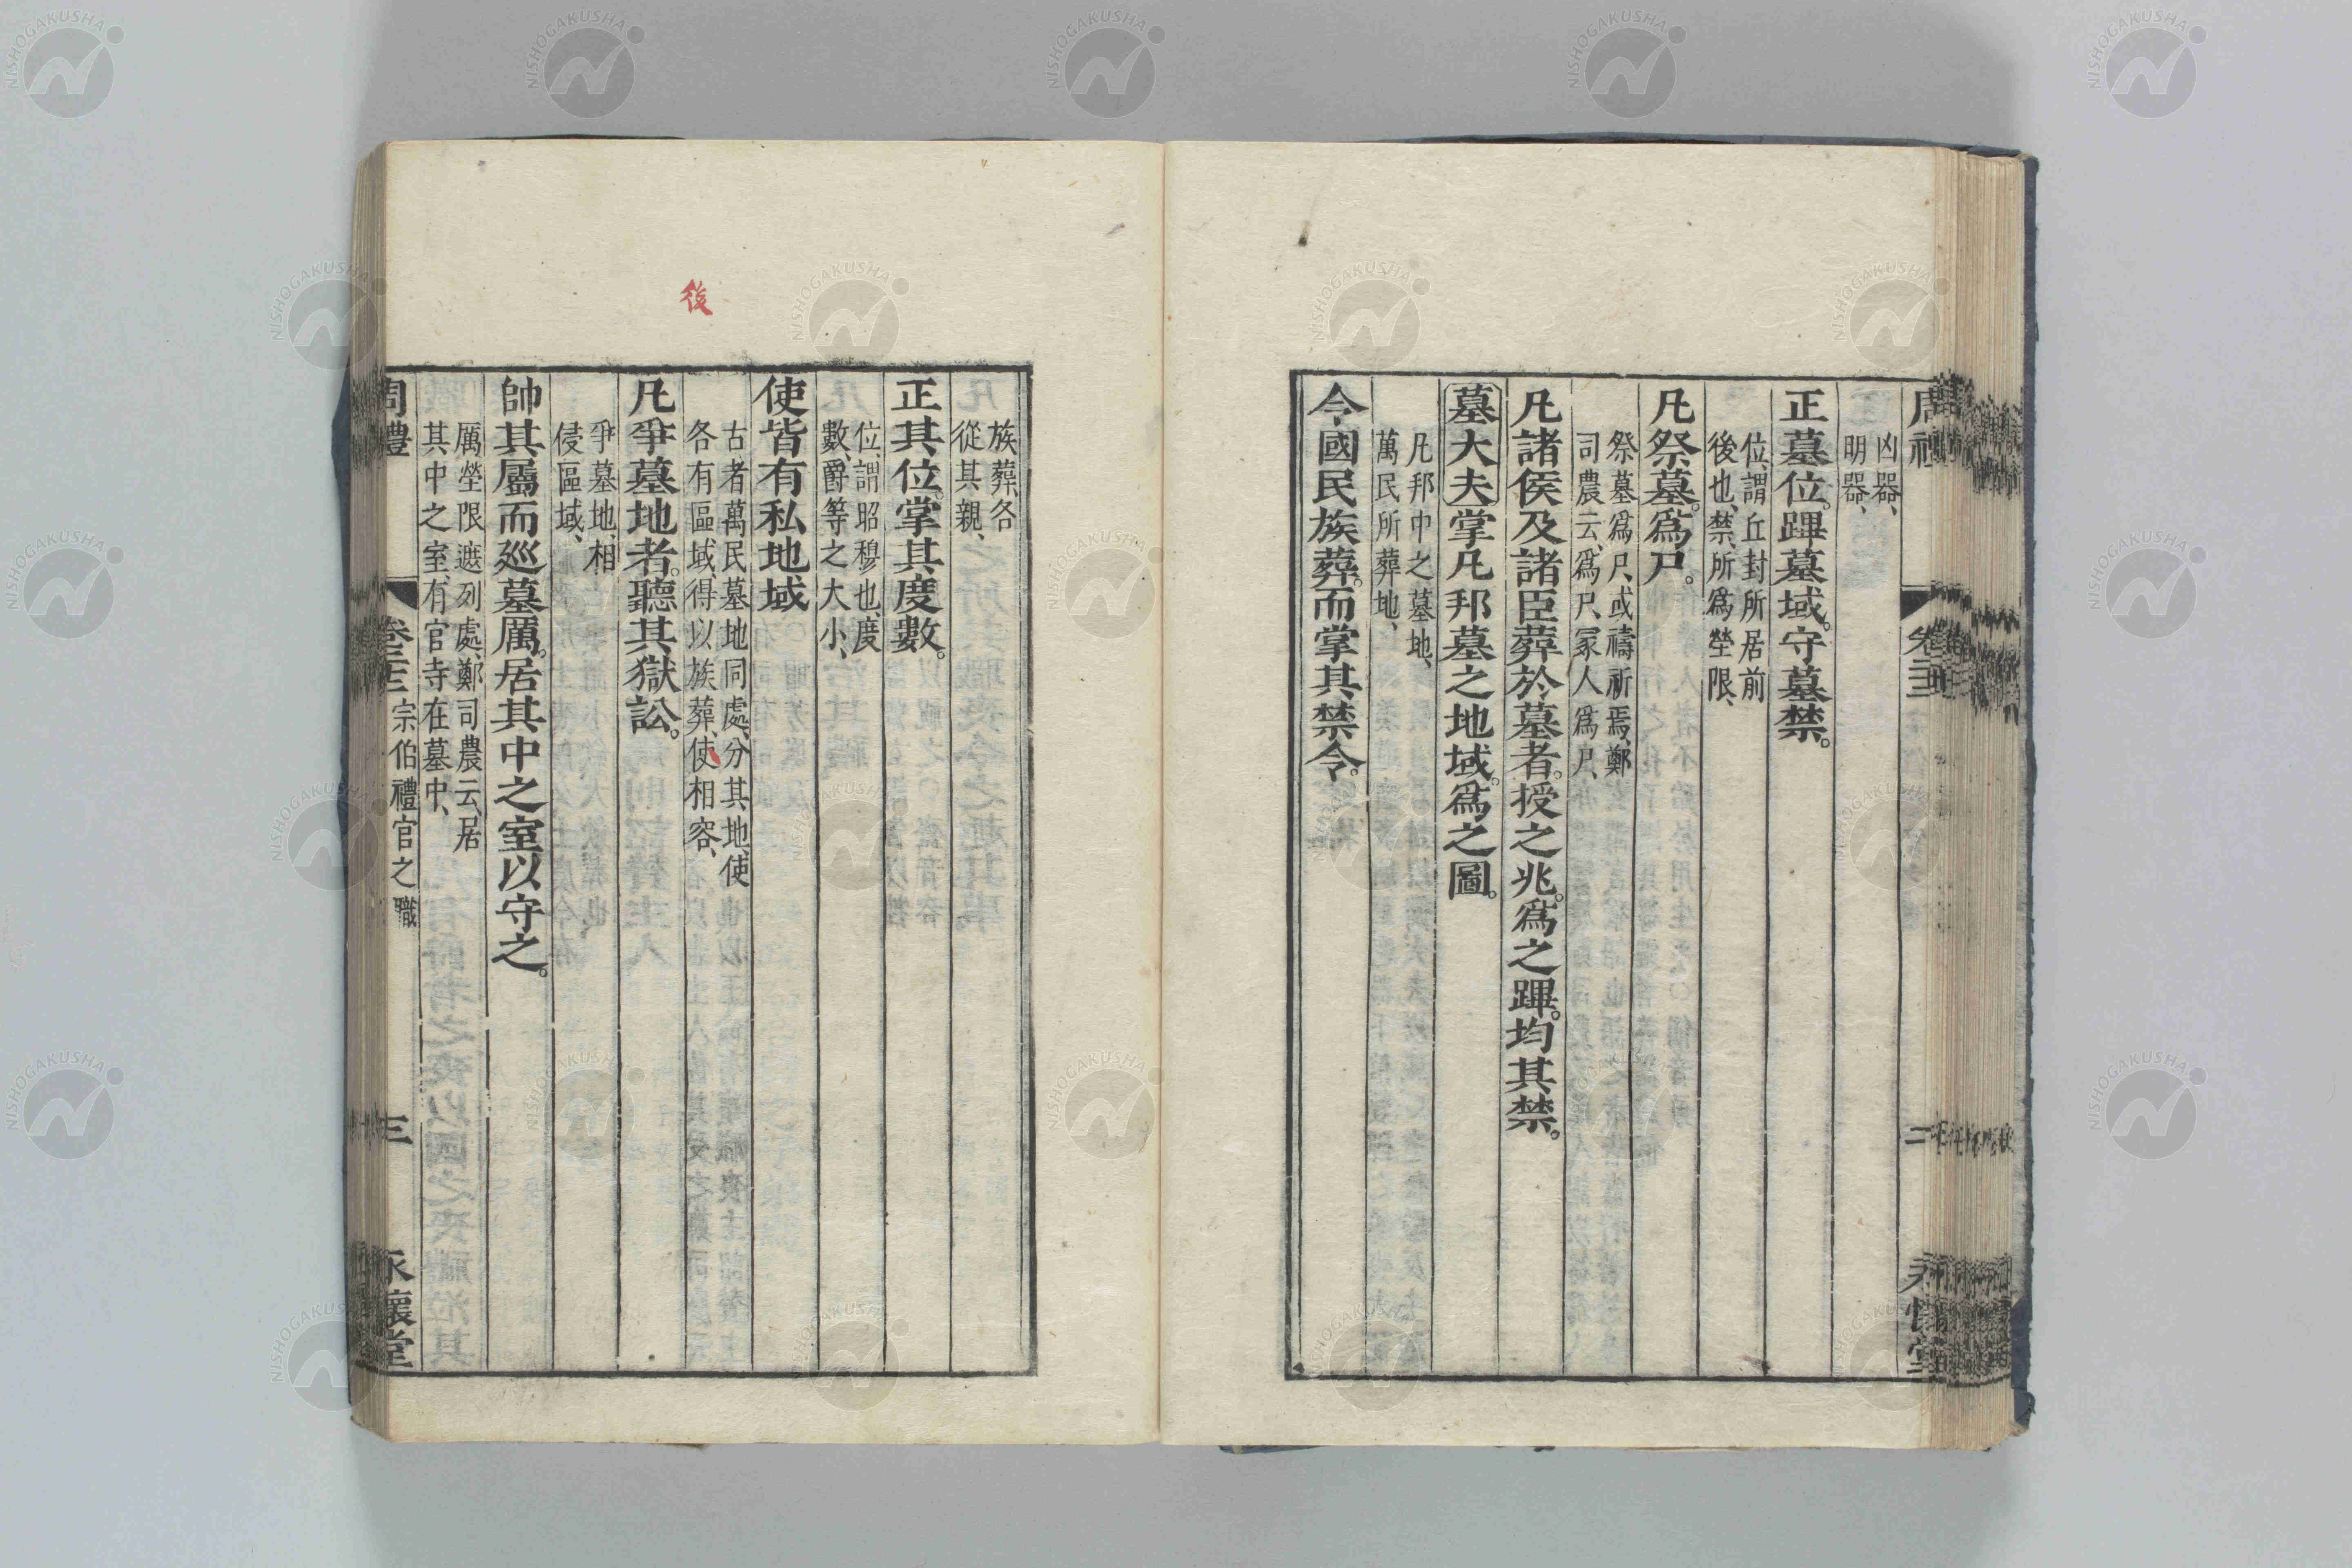 周禮
卷二十二
二
永懷堂
凶器、
明器、
正墓位。蹕墓域。守墓禁。
位、謂丘封所居前
後也、禁、所爲塋限、
凡祭墓。爲尸。
祭墓爲尸、或禱祈焉、鄭
司農云、爲尸、冢人爲尸、
凡諸侯及諸臣葬於墓者。授之兆。爲之蹕。均其禁。
墓大夫掌凡邦墓之地域。爲之圖。
凡邦中之墓地、
萬民所葬地、
令國民族葬。而掌其禁令。
族葬、各
從其親、
正其位。掌其度數。
位、謂昭穆也、度
數、爵等之大小、
使皆有私地域
古者萬民墓地同處、分其地、使
各有區域、得以族葬、使相容、
後
凡爭墓地者。聽其獄訟。
爭墓地、相
侵區域、
帥其屬而巡墓厲。居其中之室以守之。
厲、塋限遮列處、鄭司農云、居
其中之室、有官寺在墓中、
周禮
宗伯禮官之職
三
永懷堂
NISHOGAKUSHA